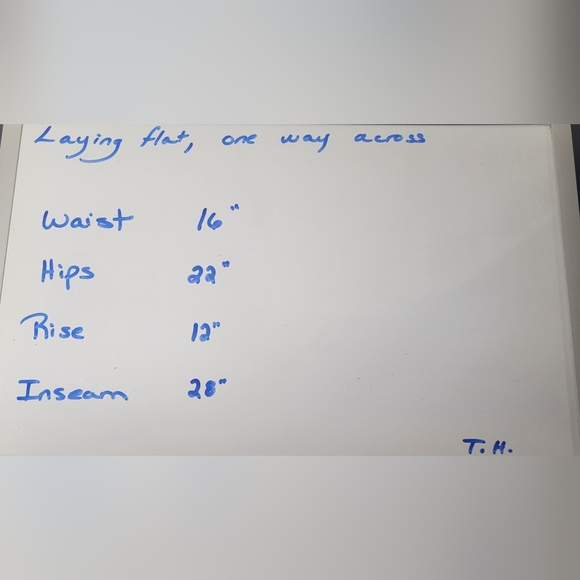 Laying flat, one way across
Waist 16"
Hips 22"
Rise 12"
Inseam 28"
T.H.